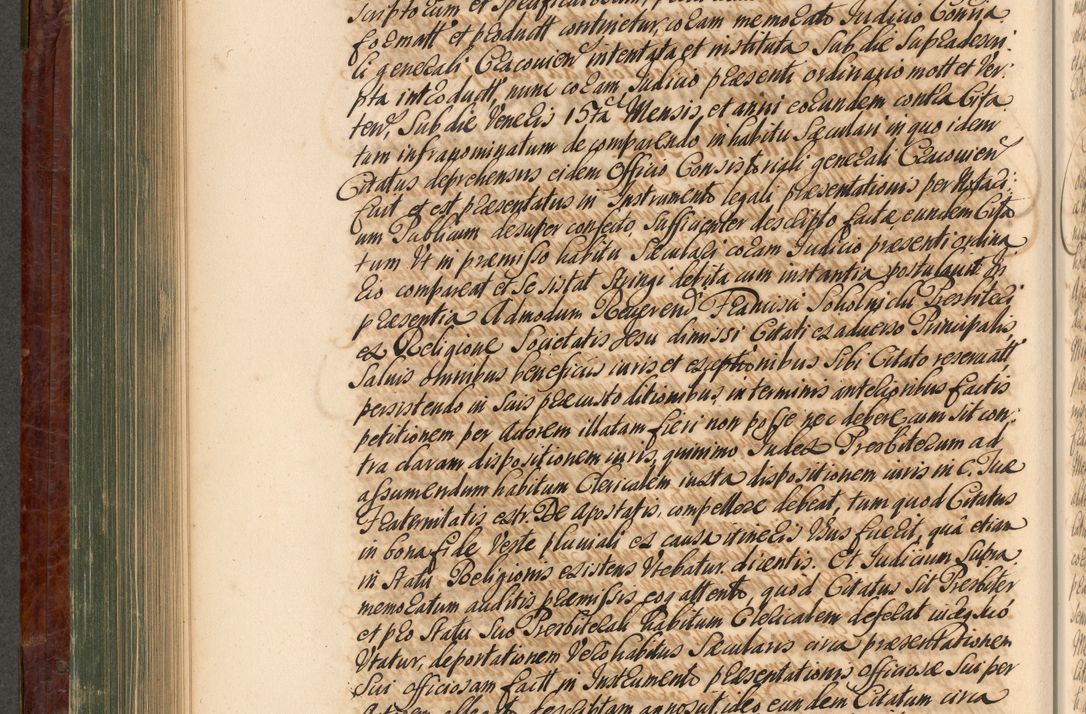 formatt et produatt continetur, coram memorato Judicio Consia
li generali Cracovien intentata et instituta Sub die Supradescri:
pta introductt, nunc coram Judicio præsenti ordinario mott et Ver:
ten, Sub die Veneris 15ta Mensis, et anni eorundem contra Cita
tum infranominatum de comparendo in habitu Sæculari in quo idem
Citatus deprehensus eidem Officio Consistoriali generali Cracovien
fuit et est præsentatus in Instrumento legali præsentationis per Notari:
um Publicum desuper confecto Sufficienter descripto factæ, eundem Cita
tum Ut in præmisso habitu Sæculari coram Judicio præsenti ordina
rio compareat et se sistat Stringi debita cum instantia postulantt In
præsentia Admodum Reverend Francisci Sokolnicki Presbiteri
ex Religione Societatis Jesu dimissi Citati ex adverso Principalis
Salvis omnibus beneficiis iuris et exceptionibus Sibi Citato reservatt
persistendo in Suis præcustoditionibus, in terminis anterioribus factis
petitionem per Actorem illatam fieri non posse nec debere cum sit con:
tra claram dispositionem iuris, quinimo Judex Presbiterum ad
assumendum habitum Clericalem iuxta dispositionem iuris in C. Tuæ
Fraternitatis extr. De Apostatis, compellere debeat, tum quod Citatus
in bona fide Veste pluviali ex causa itineris Usus fuerit, quâ etiam
in Statu Religionis existens Utebatur, dicentis. Et Judicium Supra
memoratum auditis præmissis eoq attento, quod Citatus Sit Presbiter
et pro Statu Suo Presbiterali habitum Clericalem deferat inequo
Utatur, deportationem Vero habitus Sæcularis circa præsentationem
Sui officiosam factt in Instrumento præsentationis officiosæ Sui per
descriptam agnosvit, ideo eundem Citatum circa